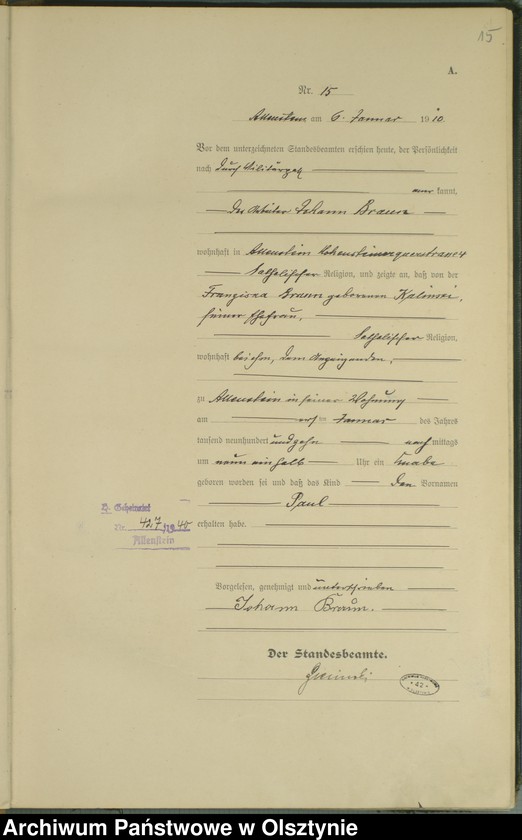 15
A.
Nr. 15
Allenstein am 6. Januar 1910
Vor dem unterzeichneten Standesbeamten erschien heute, der Persönlichkeit
nach durch Militärpaß
anerkannt,
der Arbeiter Johann Braun
wohnhaft in Allenstein Hohensteinerquerstrasse 4
katholischer Religion, und zeigte an, daß von der
Franziska Braun geborenen Kalinski,
seiner Ehefrau,
katholischer Religion,
wohnhaft bei ihm, dem Anzeigenden,
zu Allenstein in seiner Wohnung
am ersten Januar des Jahres
tausend neunhundert und zehn nachmittags
um neun einhalb Uhr ein Knabe
geboren worden sei und daß das Kind den Vornamen
Paul
erhalten habe.
Nr. 427/1940
Allenstein
Vorgelesen, genehmigt und unterschrieben
Johann Braun.
Der Standesbeamte.
42
Archiwum Państwowe w Olsztynie